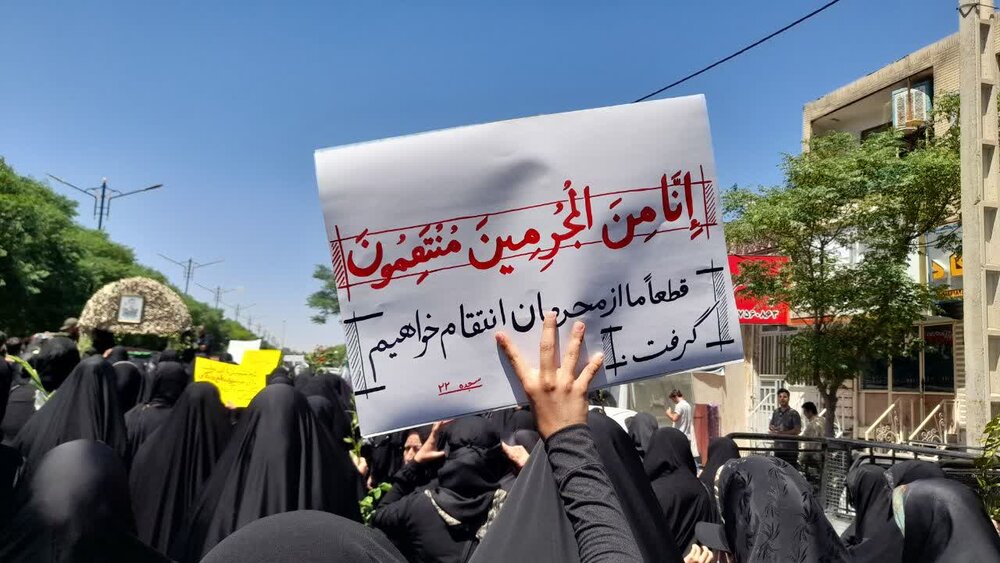 إِنَّا مِنَ الْمُجْرِمِينَ مُنْتَقِمُونَ
قطعاً ما از مجرمان انتقام خواهیم
گرفت.
سجده ۲۲